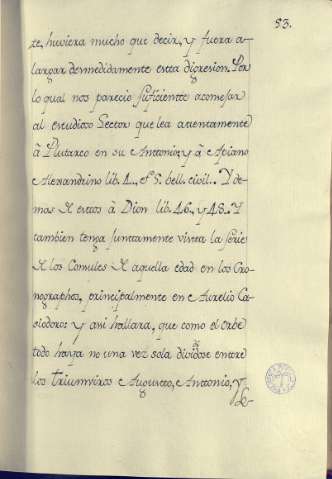 83.
te, huviera mucho que decir, y fuera a-
largar desmedidamente esta digresion. Por
lo qual nos parecio suficiente aconsejar
al estudioso Lector que lea atentamente
à Plutarco en su Antonio; y à Apiano
Alessandrino lib. 4., et 5. bell. civil.. Y de-
mas de estos à Dion lib. 46. y 48. Y
tambien tenga juntamente vista la serie
de los Consules de aquella edad en los Cro-
nographos, principalmente en Aurelio Ca-
siodoro: y asi hallara, que como el Orbe
todo haya no una vez sola dividose entre
los Triumviros Augusto, Antonio, y